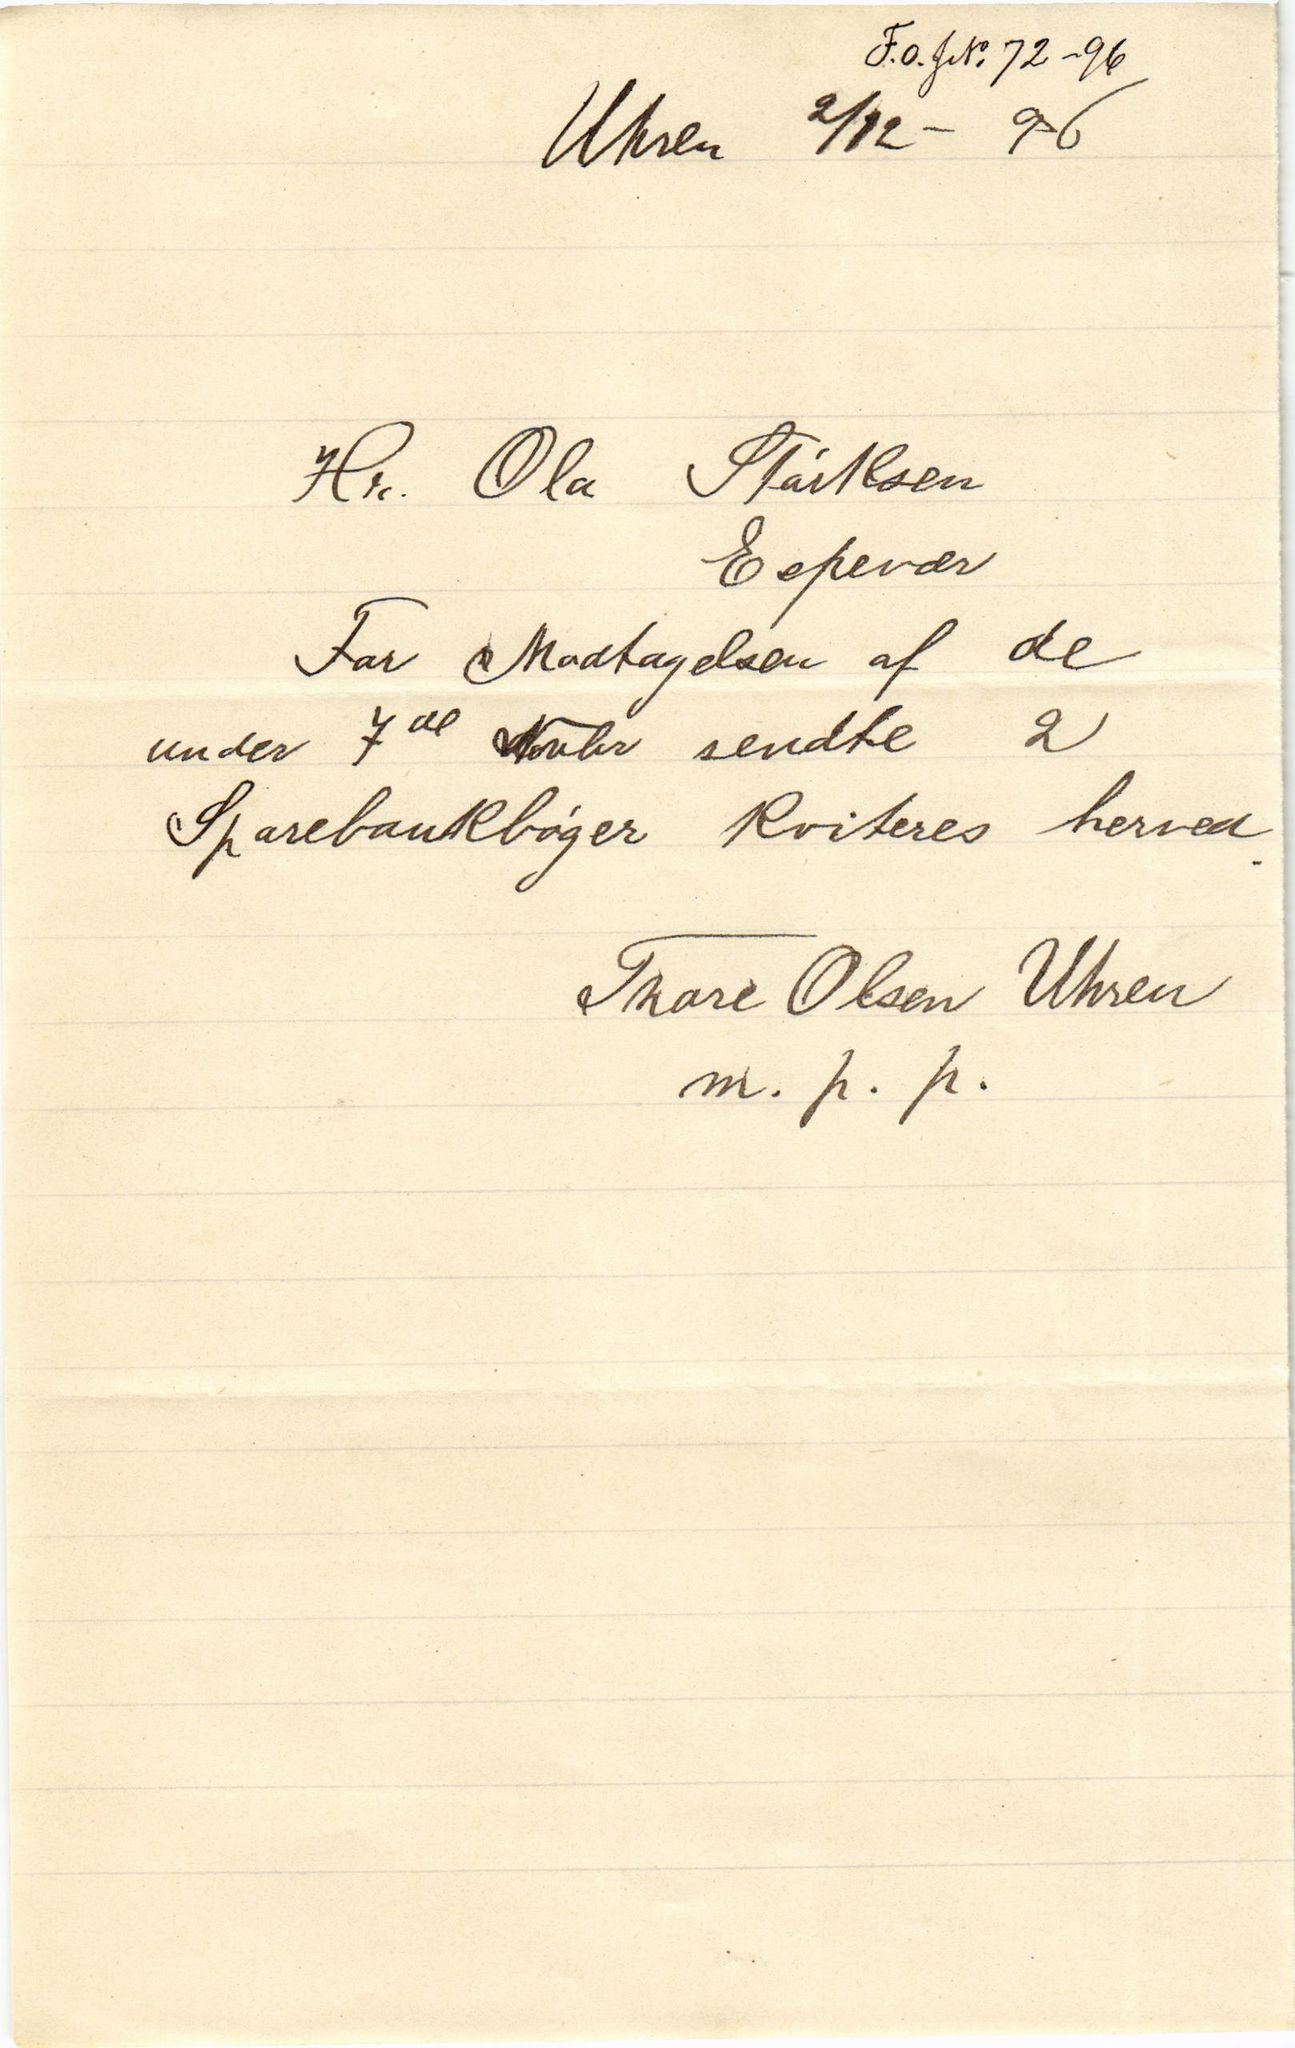 F.o. JNo. 72-96
Uhren 2/12 - 96
Hr. Ola Størksen
Espevær
For Modtagelsen af de
under 7de Novbr sendte 2
Sparebankbøger kviteres herved.
Thore Olsen Uhren
m. p. p.